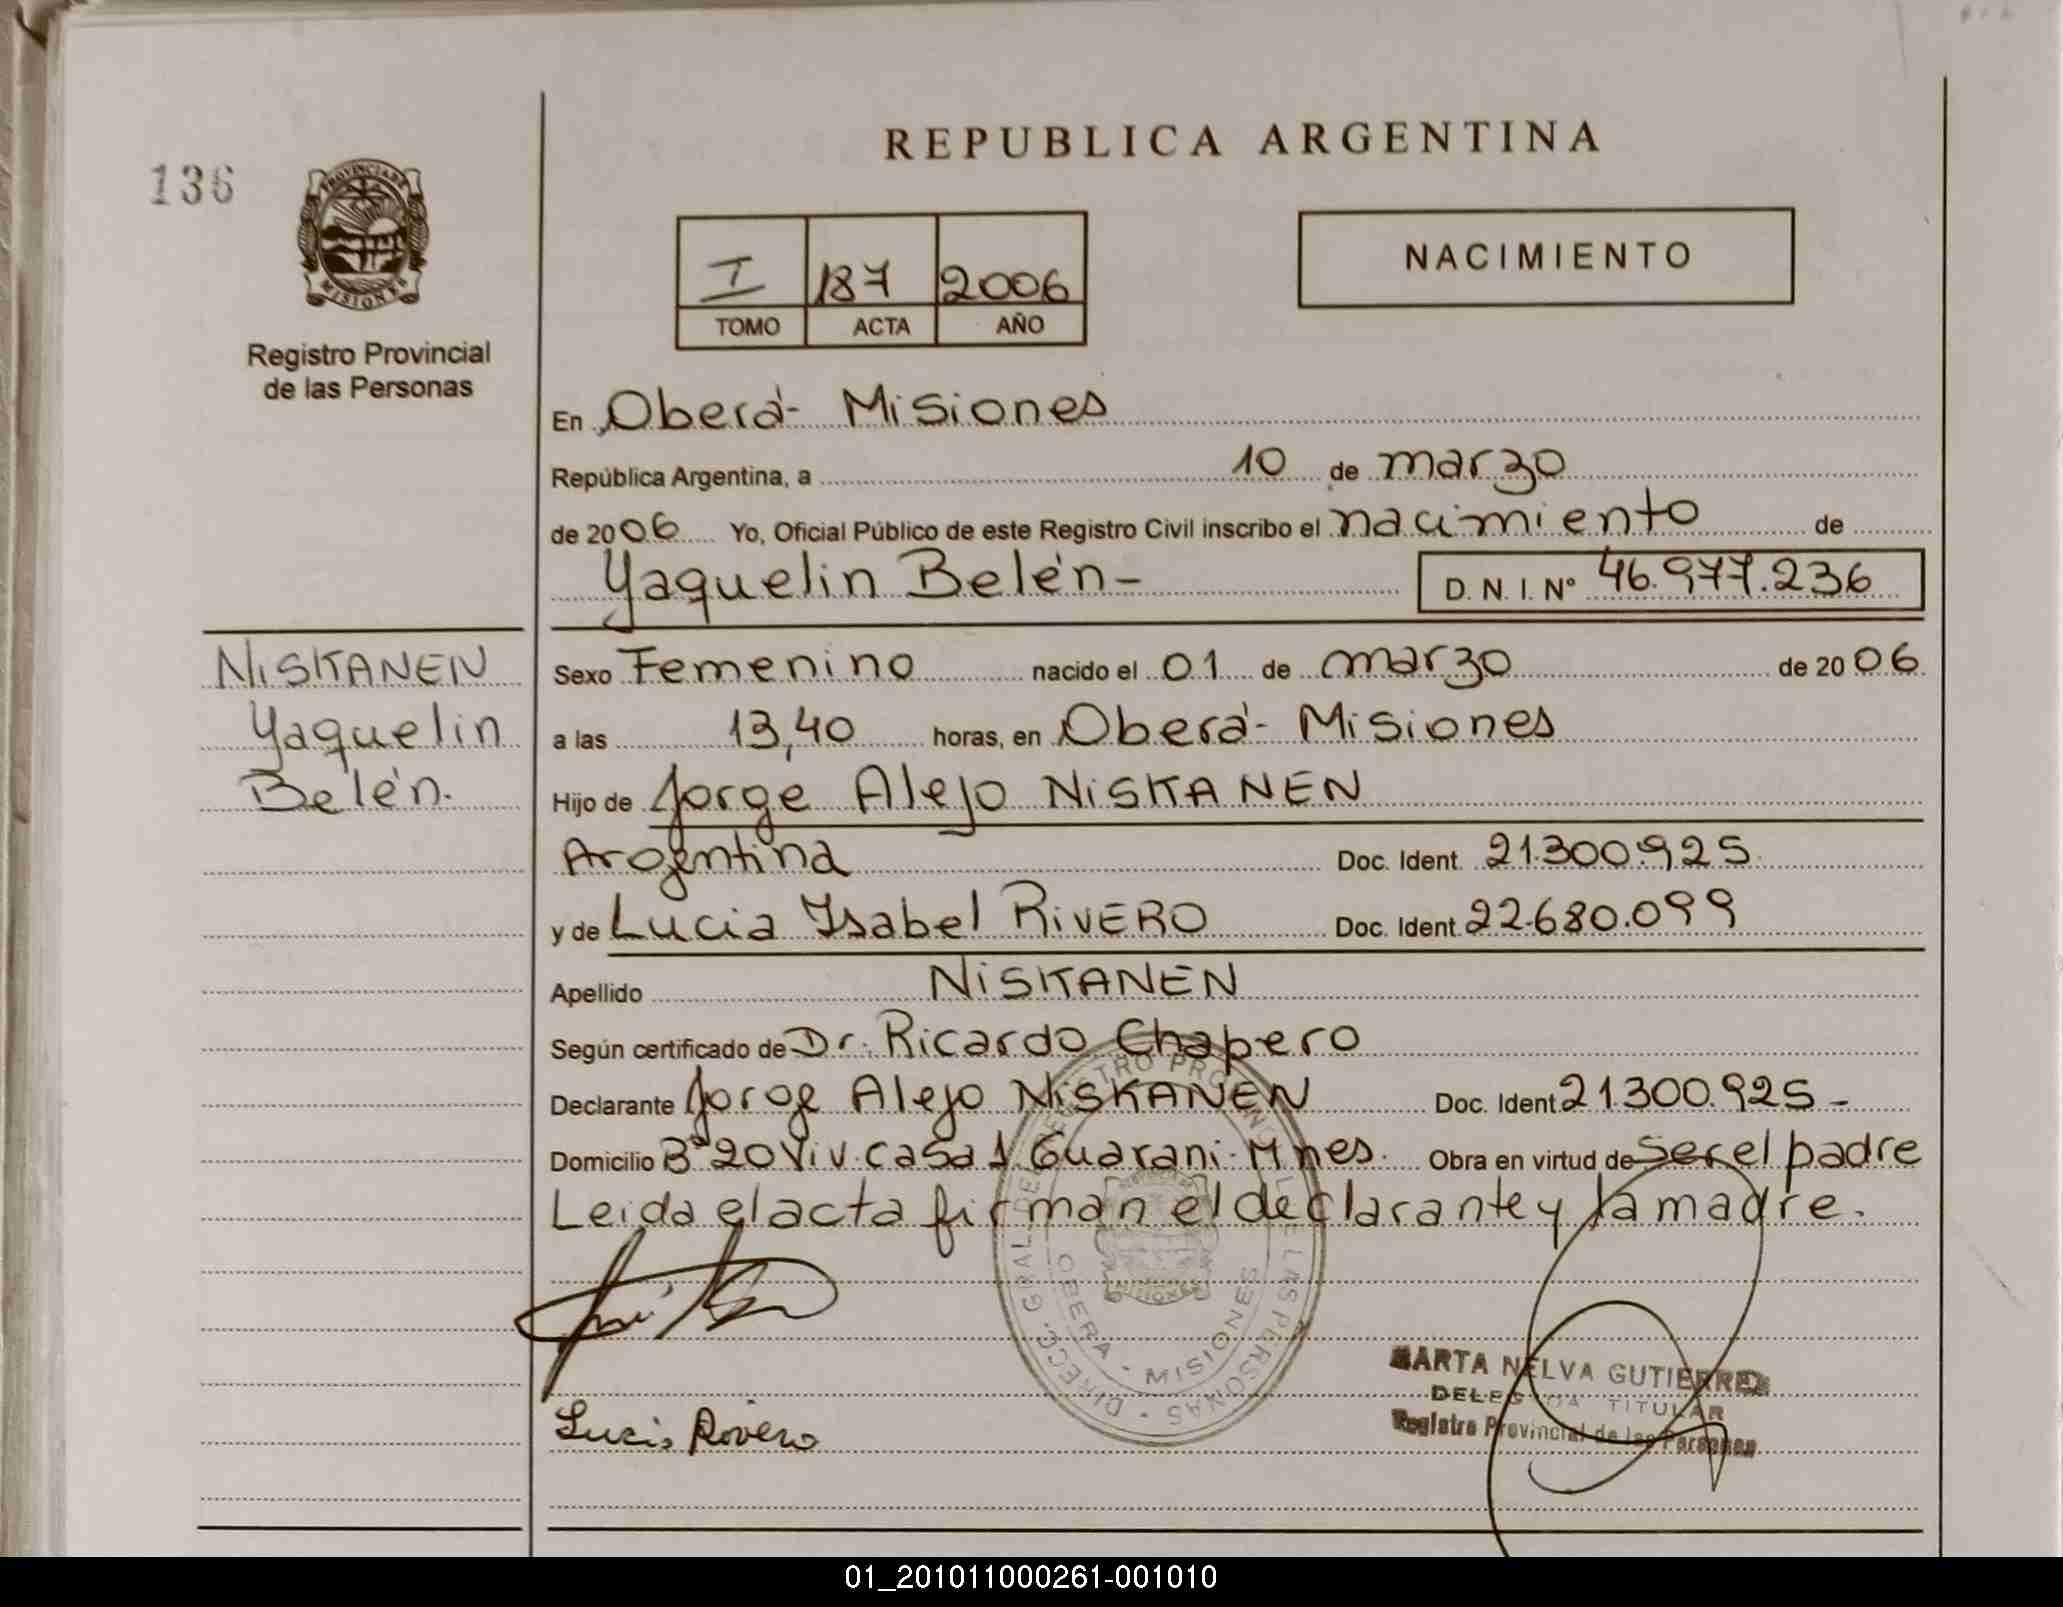 136
PROVINCIA DE
MISIONES
Registro Provincial
de las Personas
REPUBLICA ARGENTINA
I 187 2006
TOMO ACTA AÑO
NACIMIENTO
En Oberá- Misiones
República Argentina, a 10 de marzo
de 2006 Yo, Oficial Público de este Registro Civil inscribo el nacimiento de
Yaquelin Belén- D. N. I. Nº 46.977.236
NISKANEN
Yaquelin
Belén.
Sexo Femenino nacido el 01 de marzo de 2006
a las 13,40 horas, en Oberá- Misiones
Hijo de Jorge Alejo NISKANEN
Argentina Doc. Ident. 21.300.925
y de Lucia Isabel RIVERO Doc. Ident. 22.680.099
Apellido NISKANEN
Según certificado de Dr. Ricardo Chapero
Declarante Jorge Alejo NISKANEN Doc. Ident. 21.300.925-
Domicilio Bº 20 Viv. Casa 1. Guarani- Mnes. Obra en virtud de ser el padre
Leida el acta firman el declarante y la madre.
DIRECC. GRAL. DEL REGISTRO PROVINCIAL DE LAS PERSONAS
OBERA - MISIONES
MARTA NELVA GUTIERREZ
DELEGADA TITULAR
Registro Provincial de las Personas
Lucia Rivero
01_201011000261-001010